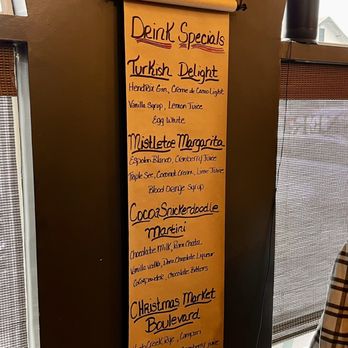 Drink Specials
Turkish Delight
Hendricks Gin, Crème de Cacao Light
Vanilla Syrup, Lemon Juice
Egg White
Mistletoe Margarita
Espolon Blanco, Cranberry Juice
Triple Sec, Coconut Cream, Lime Juice
Blood Orange Syrup
Cocoa Snickerdoodle
Martini
Chocolate Milk, Rum Chata
Vanilla vodka, Dark Chocolate Liqueur
Chocolate Bitters
Christmas Market
Boulevard
Campari